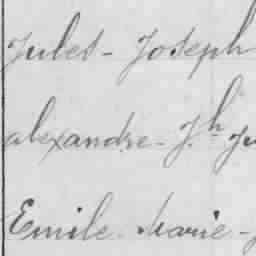 Jules - Joseph
alexandre - J.h Ju
Emile - Marie -